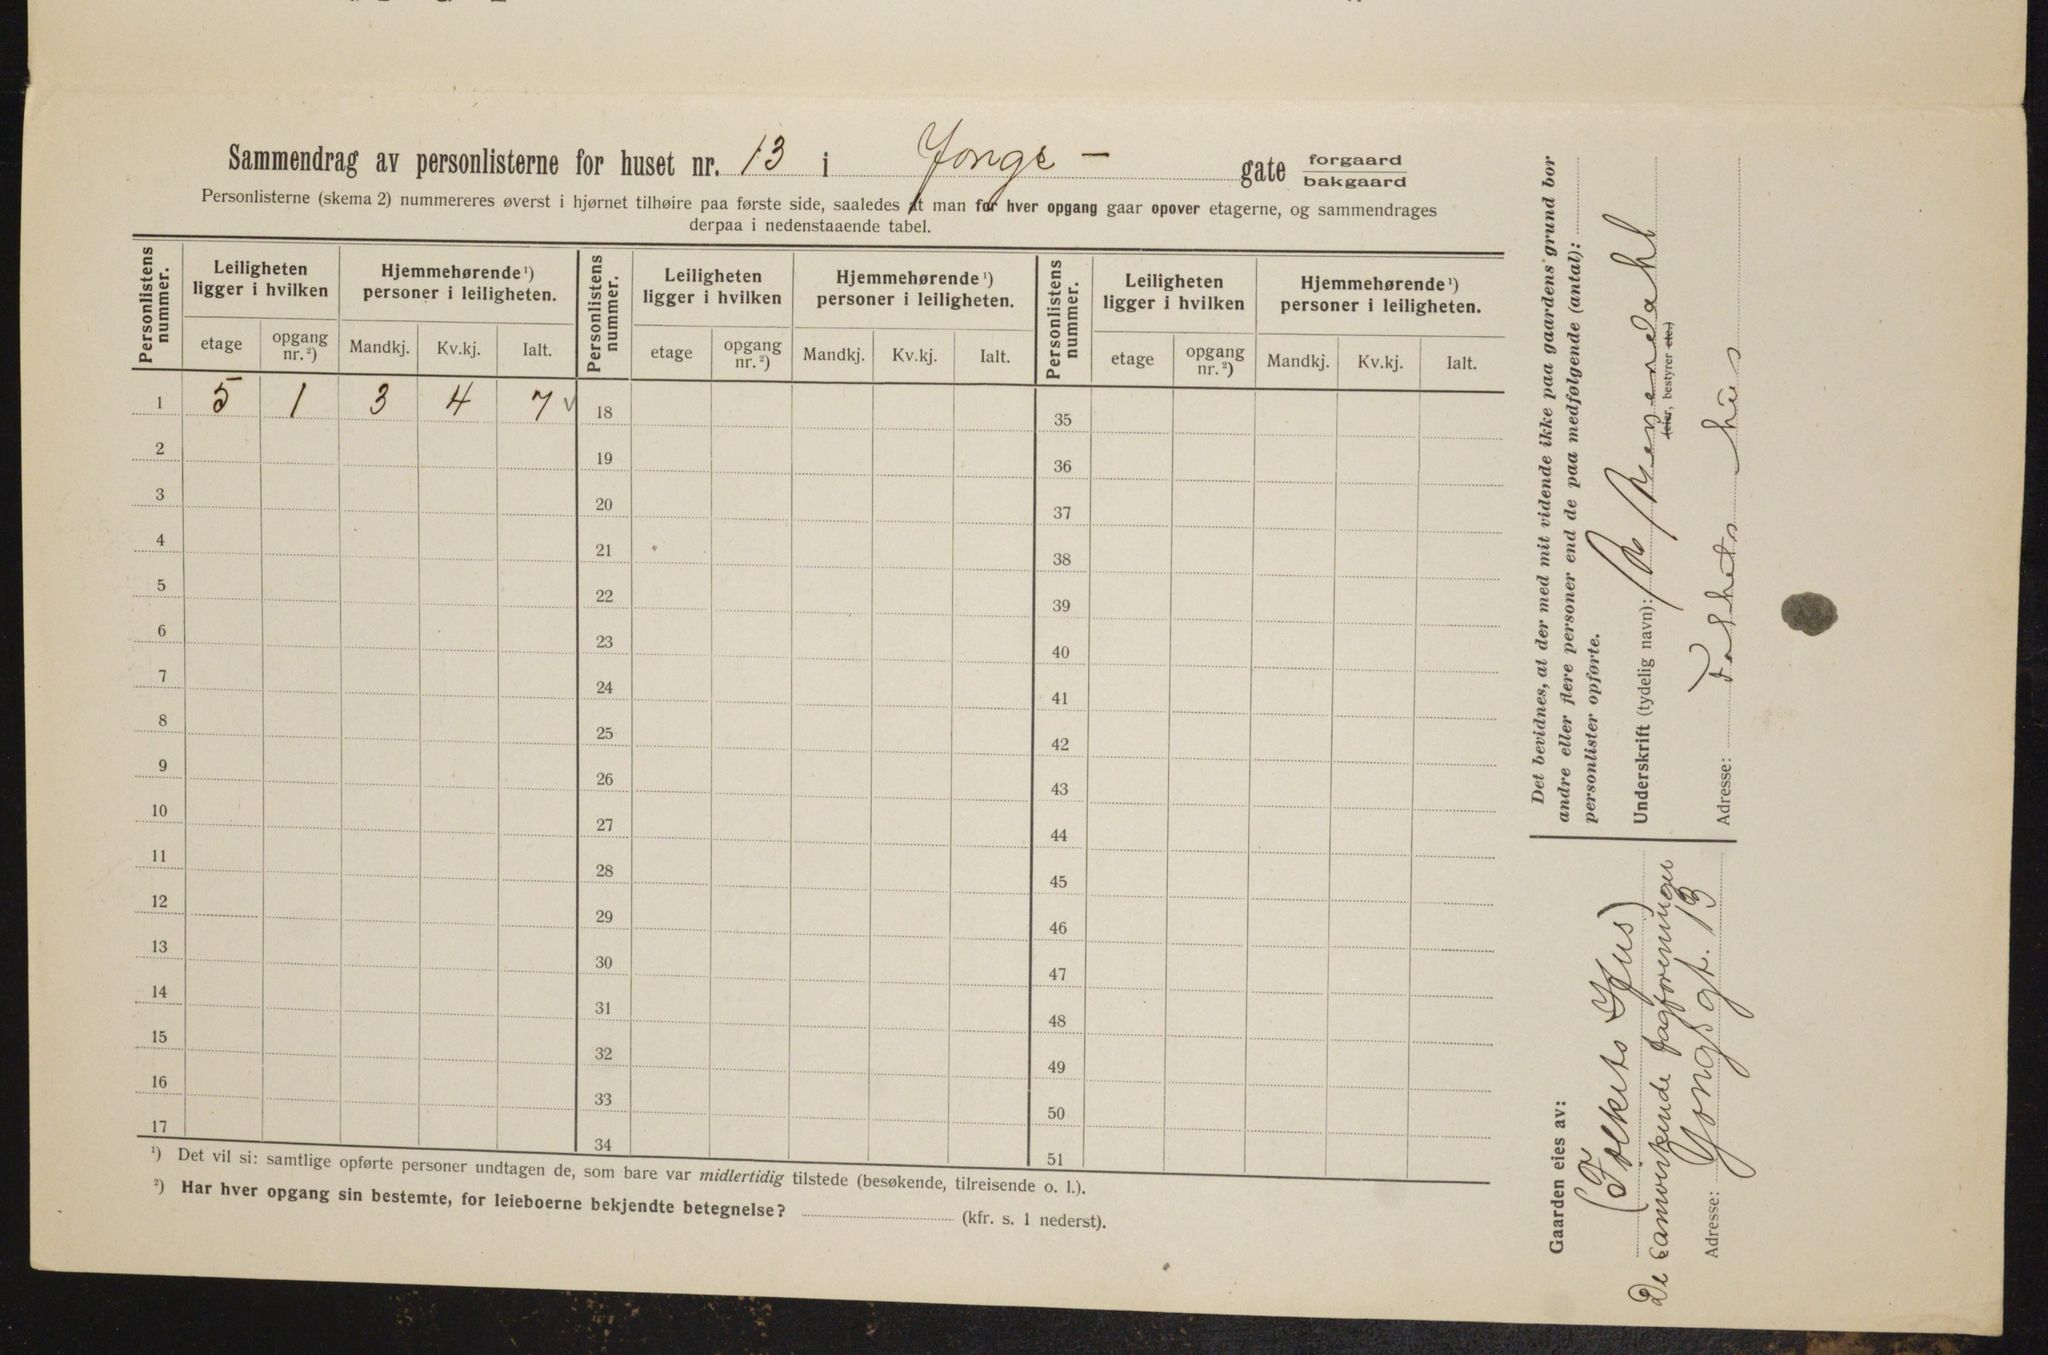 Sammendrag av personlisterne for huset nr. 13 i Yongs - gate forgaard
bakgaard
Personlisterne (skema 2) nummereres øverst i hjørnet tilhøire paa første side, saaledes at man for hver opgang gaar opover etagerne, og sammendrages
derpaa i nedenstaaende tabel.
Personlistens nummer.
Leiligheten ligger i hvilken
Hjemmehørende ¹) personer i leiligheten.
Personlistens nummer.
Leiligheten ligger i hvilken
Hjemmehørende ¹) personer i leiligheten.
Personlistens nummer.
Leiligheten ligger i hvilken
Hjemmehørende ¹) personer i leiligheten.
etage opgang nr. ²) Mandkj. Kv.kj. Ialt. etage opgang nr. ²) Mandkj. Kv.kj. Ialt. etage opgang nr. ²) Mandkj. Kv.kj. Ialt.
1 5 1 3 4 7 v 18 35
2 19 36
3 20 37
4 21 38
5 22 39
6 23 40
7 24 41
8 25 42
9 26 43
10 27 44
11 28 45
12 29 46
13 30 47
14 31 48
15 32 49
16 33 50
17 34 51
¹) Det vil si: samtlige opførte personer undtagen de, som bare var midlertidig tilstede (besøkende, tilreisende o. l.).
²) Har hver opgang sin bestemte, for leieboerne bekjendte betegnelse? (kfr. s. 1 nederst).
Det bevidnes, at der med mit vidende ikke paa gaardens grund bor
andre eller flere personer end de paa medfølgende (antal):
personlister opførte.
Underskrift (tydelig navn):
(eier, bestyrer etc.)
Adresse: Folkets hus
Gaarden eies av:
(Folkets Hus)
De samvirkende fagforeninger
Adresse: Yongsgt. 13